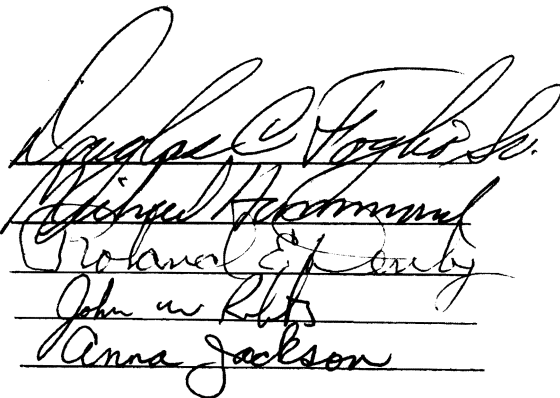 Douglas C Foglio Sr.
Michael Hammond
Roland E Denby
John W Roberts
Anna Jackson